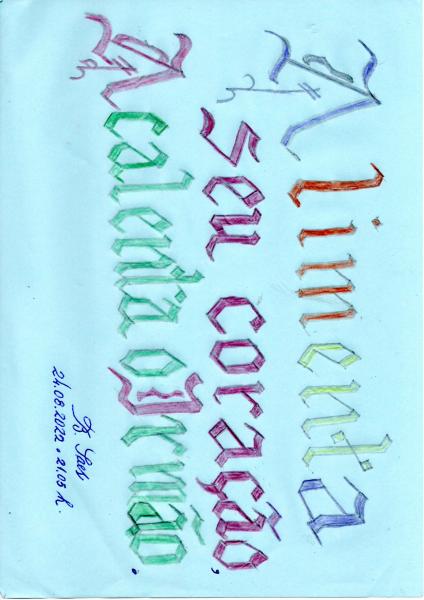 Alimenta
seu coração,
Acalenta o Irmão.
24.08.2022 • 21.05 h.